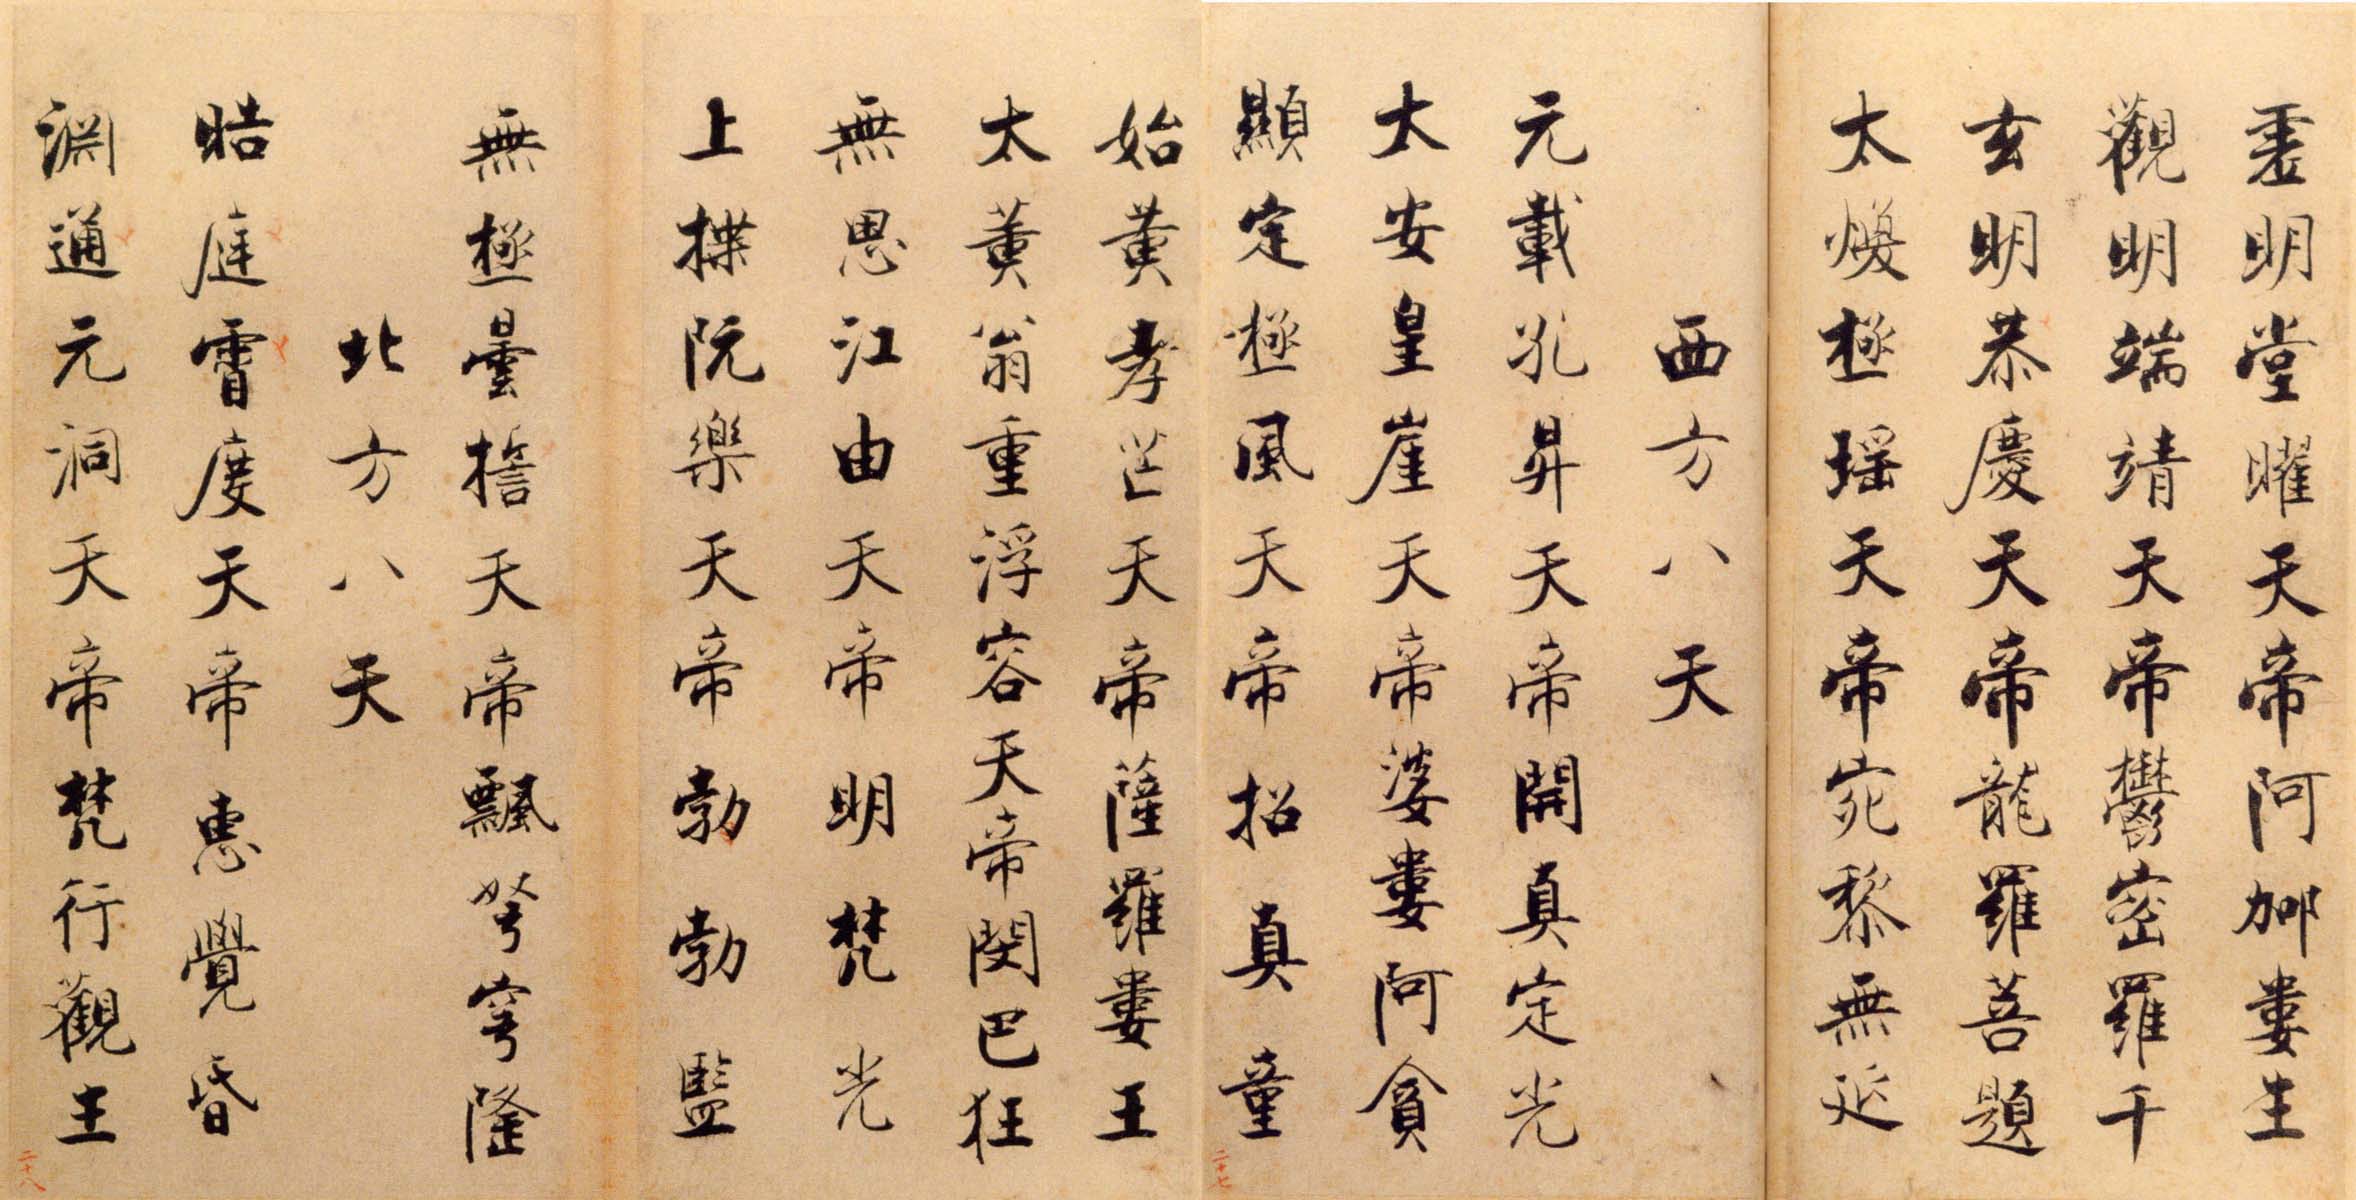 虛明堂曜天帝阿那婁生
觀明端靖天帝鬱密羅千
玄明恭慶天帝龍羅菩題
太煥極瑤天帝宛黎無延
西方八天
元載孔昇天帝開真定光
太安皇崖天帝婆婁阿貪
顯定極風天帝招真童
始黃孝芒天帝薩羅婁王
太黃翁重浮容天帝閔巴狂
無思江由天帝明梵光
上揲阮樂天帝勃勃監
無極曇誓天帝飄弩穹隆
北方八天
皓庭霄度天帝惠覺昏
淵通元洞天帝梵行觀生
二十七
二十八